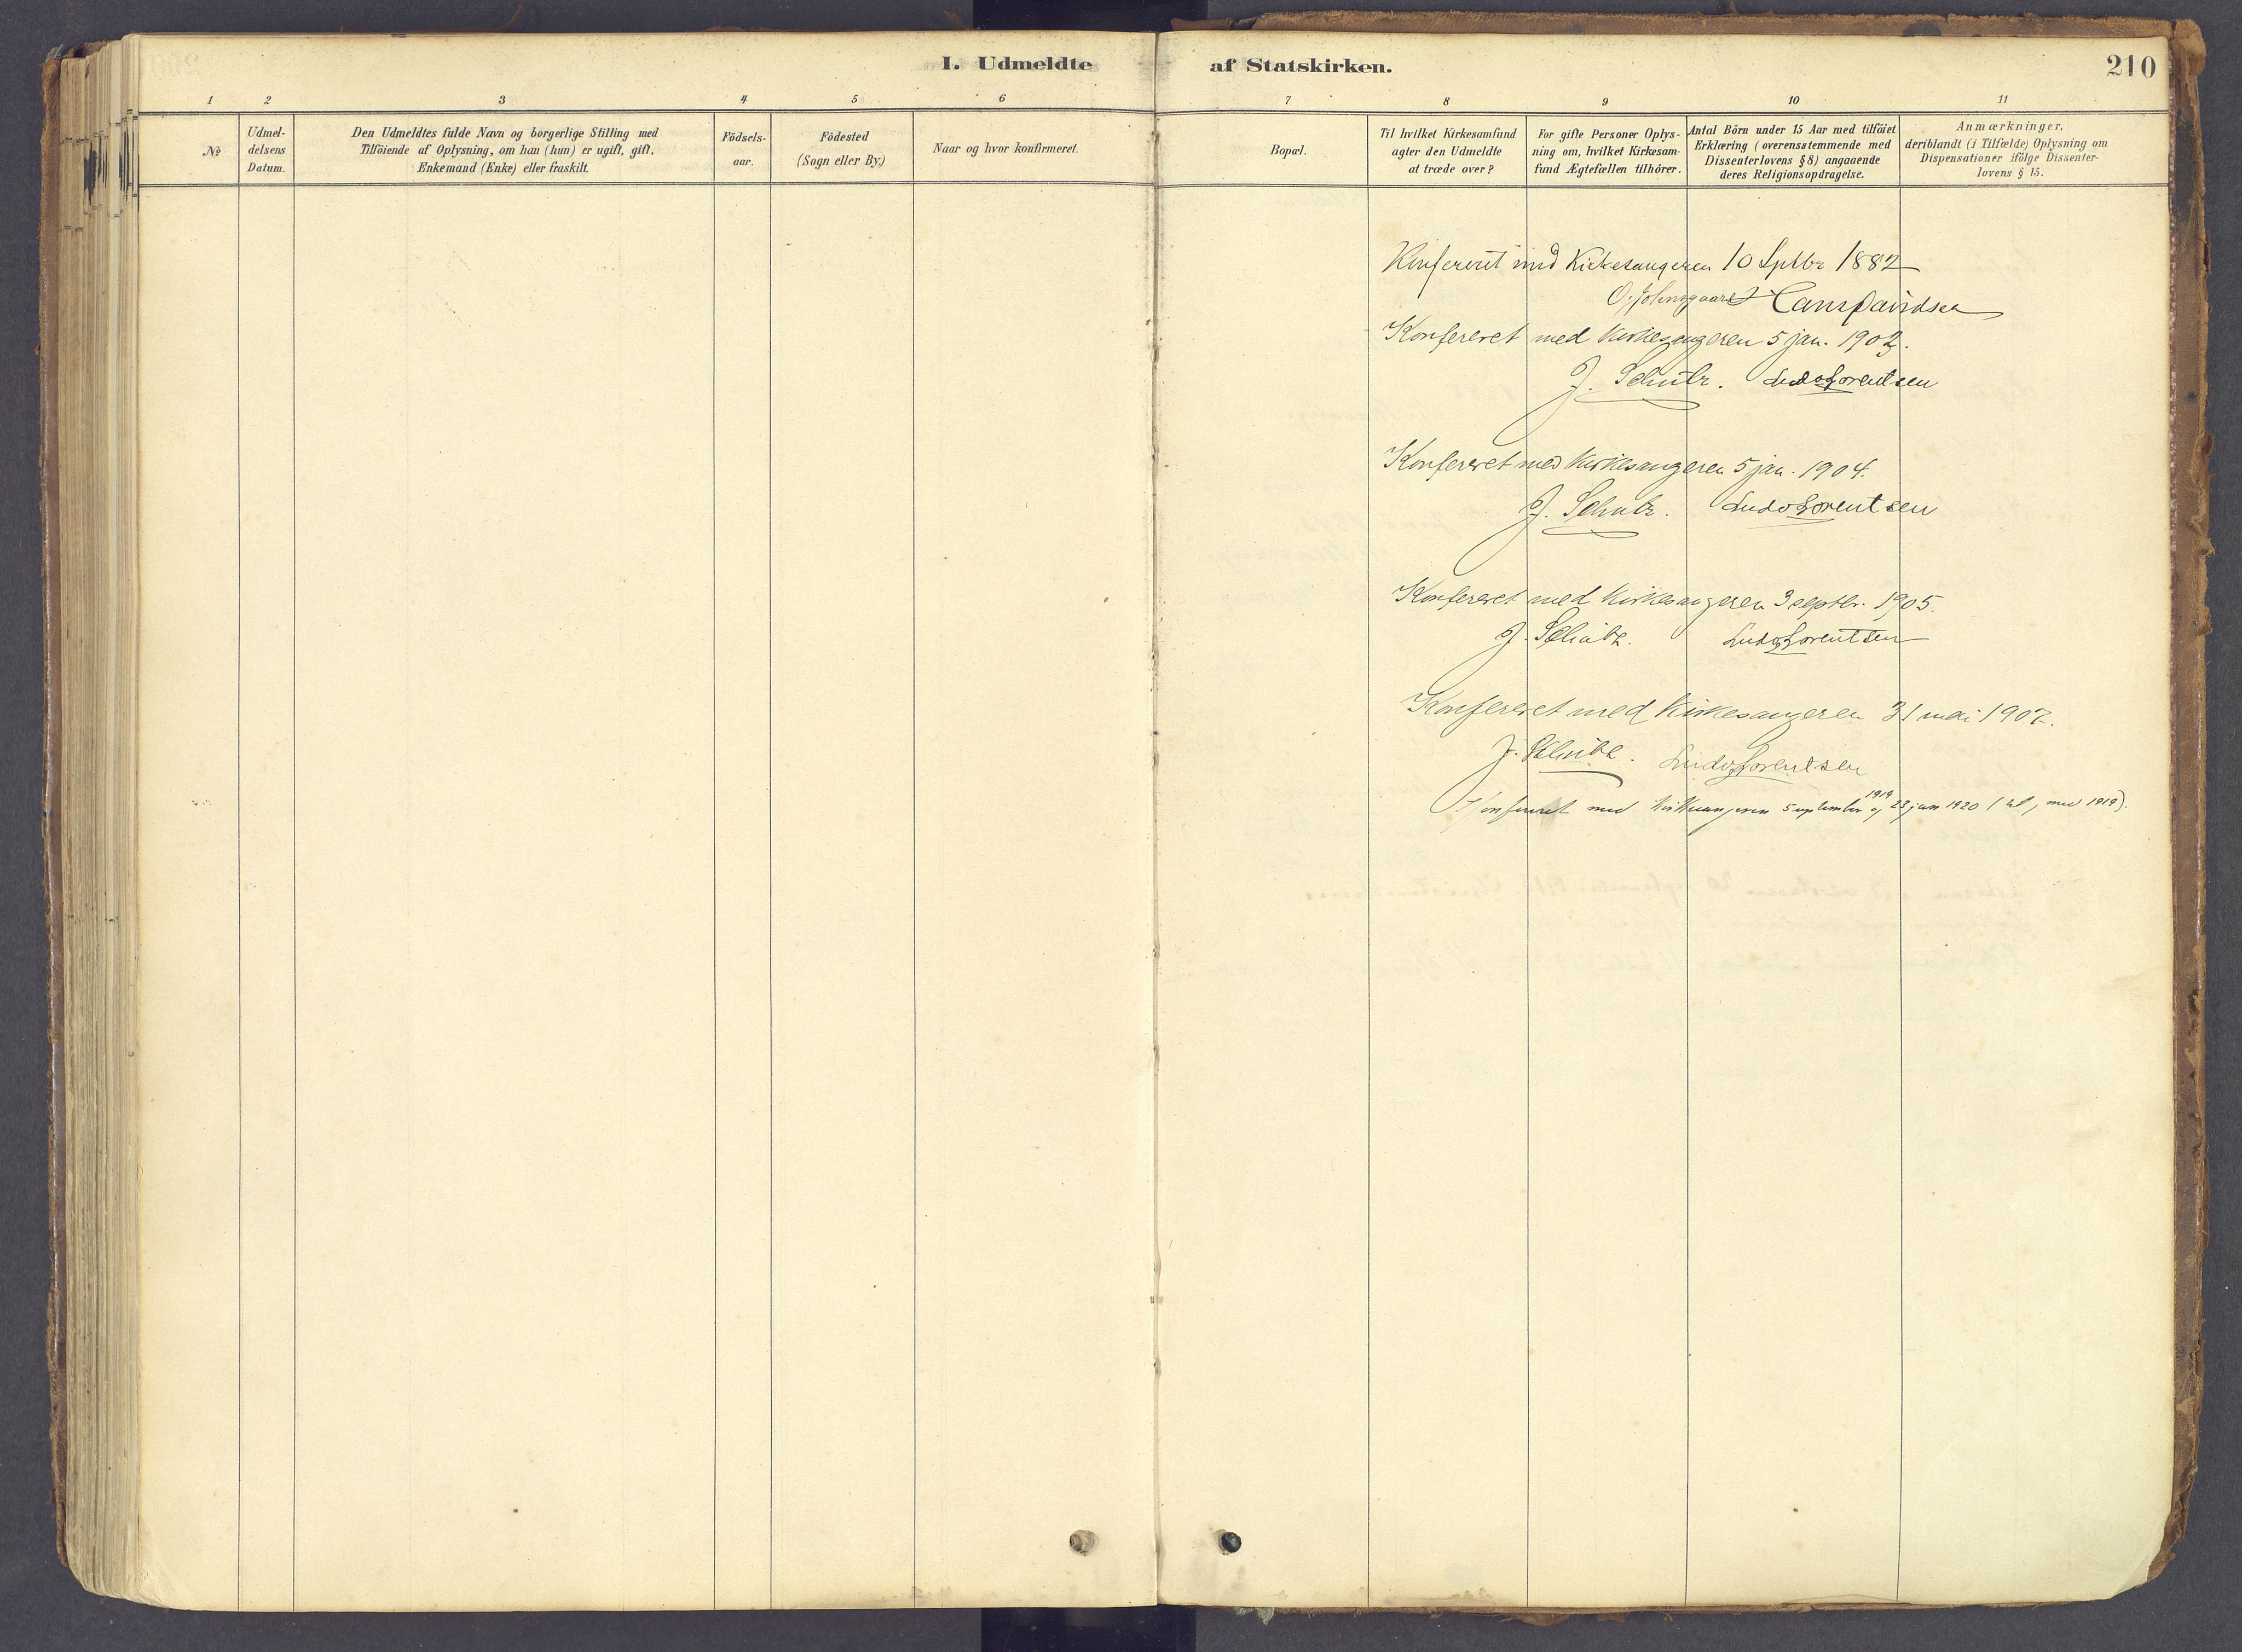 I. Udmeldte af Statskirken.
210
1 2 3 4 5 6 7 8 9 10 11
№
Udmel-
delsens
Datum.
Den Udmeldtes fulde Navn og borgerlige Stilling med
Tilföiende af Oplysning, om han (hun) er ugift, gift,
Enkemand (Enke) eller fraskilt.
Födsels-
aar.
Födested
(Sogn eller By.)
Naar og hvor konfirmeret.
Bopæl.
Til hvilket Kirkesamfund
agter den Udmeldte
at træde over?
For gifte Personer Oplys-
ning om, hvilket Kirkesam-
fund Ægtefællen tilhörer.
Antal Börn under 15 Aar med tilföiet
Erklæring (overensstemmende med
Dissenterlovens § 8) angaaende
deres Religionsopdragelse.
Anmærkninger,
deriblandt (i Tilfælde) Oplysning om
Dispensationer ifölge Dissenter-
lovens § 15.
Konfereret med Kirkesangeren 10 Septbr 1882
Davidsen
Konfereret med Kirkesangeren 5 jan.
J. Schütz. Ludv Lorentsen
Konfereret med Kirkesangeren 5 jan. 1904.
J. Schütz. Ludv Lorentsen
Konfereret med Kirkesangeren 3 septbr. 1905.
J. Schütz. Ludv Lorentsen
Konfereret med Kirkesangeren 31 mai 1907.
J. Schütz. Ludv Lorentsen
Konfereret med Kirkesangeren 5 september 1919 og 23 jan 1920 (til og med 1919).